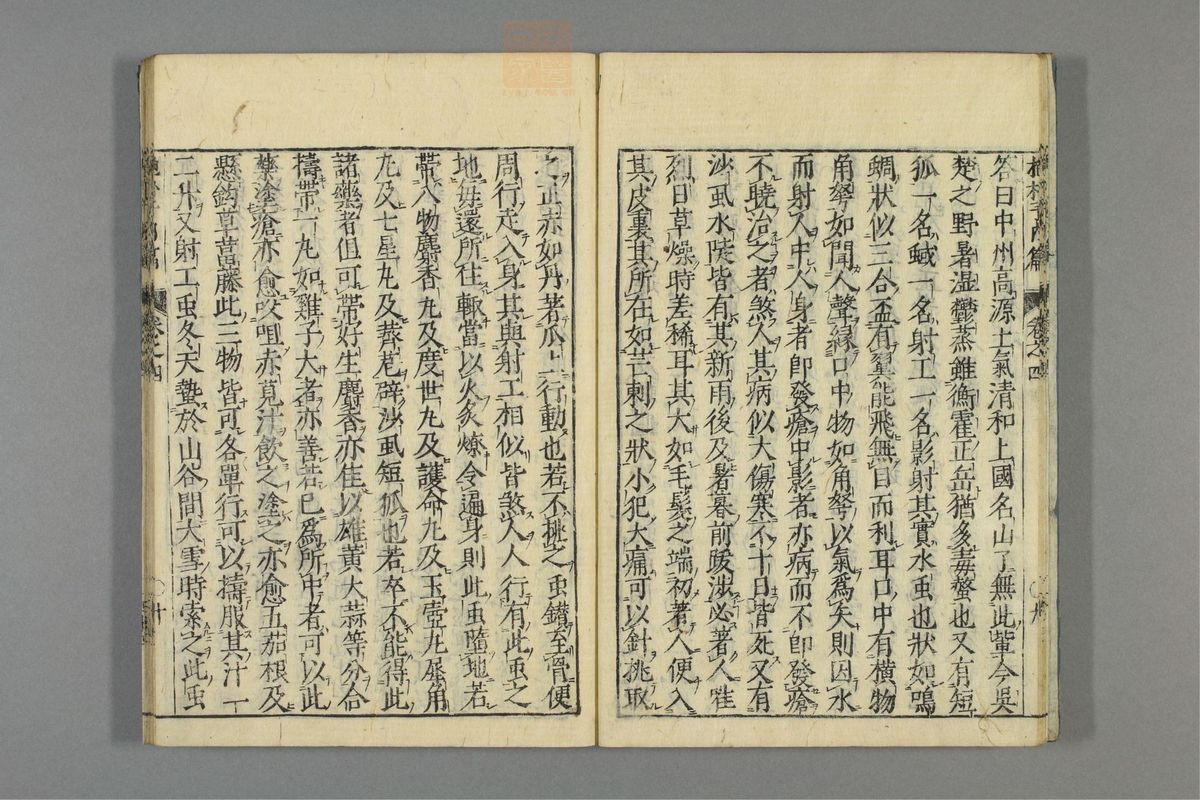 抱朴子内篇 卷之四 十
答曰中州高源土氣清和上國名山了無此輩今吳
楚之野暑濕鬱蒸雖衡霍正岳猶多毒蠚也又有短
狐一名蜮一名射工一名影射其實水虫也狀如鳴
蜩狀似三合盃有翼能飛無目而利耳口中有橫物
角弩如聞人聲緣口中物如角弩以氣爲矢則因水
而射人中人身者即發瘡中影者亦病而不即發瘡
不曉治之者煞人其病似大傷寒不十日皆死又有
沙虱水陸皆有其新雨後及暑暮前跋涉必著人唯
烈日草燥時差稀耳其大如毛髮之端初著人便入
其皮裏其所在如芒刺之狀小犯大痛可以針挑取
之正赤如丹著爪上行動也若不挑之虫鑚至骨便
周行走入身其與射工相似皆煞人人行有此虫之
地毎還所住輙當以火炙燎令遍身則此虫墮地若
帶入物麝香丸及度世丸及護命丸及玉壺丸犀角
丸及七星丸及薺苨辟沙虱短狐也若卒不能得此
諸藥者但可帶好生麝香亦佳以雄黄大蒜等分合
擣帶一丸如雞子大者亦善若已爲所中者可以此
藥塗瘡亦愈㕮咀赤莧汁飲之塗之亦愈五茄根及
懸鈎草葍藤此三物皆可各單行可以擣服其汁一
二升又射工虫冬天蟄於山谷間大雪時索之此虫
卷之四 十